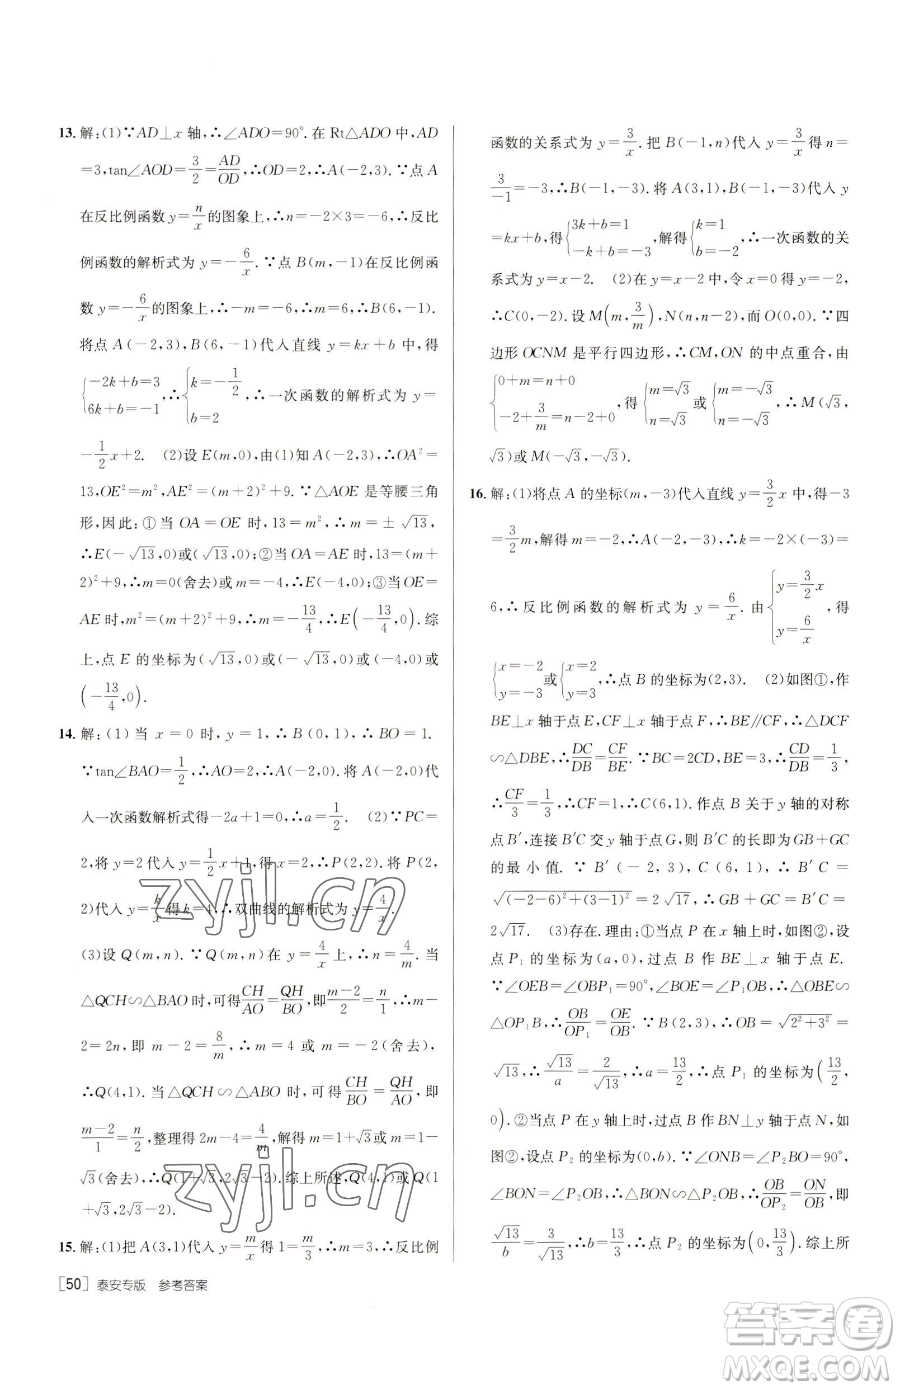 13. 解:(1)∵AD⊥x 轴,∴∠ADO=90°. 在 Rt△ADO 中,AD
=3,tan∠AOD=3/2=AD/OD,∴OD=2,∴A(-2,3). ∵点 A
在反比例函数 y=n/x 的图象上,∴n=-2×3=-6,∴反比
例函数的解析式为 y=-6/x. ∵点 B(m,-1)在反比例函
数 y=-6/x 的图象上,∴-m=-6,∴m=6,∴B(6,-1).
将点 A(-2,3),B(6,-1)代入直线 y=kx+b 中,得
{-2k+b=3 6k+b=-1 ,∴{k=-1/2 b=2 ,∴一次函数的解析式为 y=
-1/2x+2. (2)设 E(m,0),由(1)知,A(-2,3),∴OA²=
13,OE²=m²,AE²=(m+2)²+9. ∵△AOE 是等腰三角
形,因此:①当 OA=OE 时,13=m²,∴m=±√13,
∴E(-√13,0)或(√13,0);②当 OA=AE 时,13=(m+
2)²+9,∴m=0(舍去)或 m=-4,∴E(-4,0);③当 OE=
AE 时,m²=(m+2)²+9,∴m=-13/4,∴E(-13/4,0). 综
上,点 E 的坐标为(√13,0)或(-√13,0)或(-4,0)或
(-13/4,0).
14. 解:(1)当 x=0 时,y=1,∴B(0,1),∴BO=1.
∵tan∠BAO=1/2,∴AO=2,∴A(-2,0). 将 A(-2,0)代
入一次函数解析式得-2a+1=0,∴a=1/2. (2)∵PC=
2,将 y=2 代入 y=1/2x+1,得 x=2,∴P(2,2). 将 P(2,
2)代入 y=k/x得 k=4,∴双曲线的解析式为 y=4/x.
(3)设 Q(m,n). ∵Q(m,n)在 y=4/x上,∴n=4/m. ①当
△QCH∽△BAO 时,可得CH/AO=QH/BO,即m-2/2=n/1,∴m-
2=2n,即 m-2=8/m,∴m=4 或 m=-2(舍去),
∴Q(4,1). ②当△QCH∽△ABO 时,可得CH/BO=QH/AO,即
m-2/1=n/2,整理得 2m-4=4/m,解得 m=1+√3或 m=1-
√3(舍去),∴Q(1+√3,2√3-2). 综上所述,Q(4,1)或 Q(1
+√3,2√3-2).
15. 解:(1)把 A(3,1)代入 y=m/x得 1=m/3,∴m=3,∴反比例
[50] 泰安专版 参考答案
函数的关系式为 y=3/x. 把 B(-1,n)代入 y=3/x得 n=
3/-1=-3,∴B(-1,-3). 将 A(3,1),B(-1,-3)代入 y
=kx+b,得{3k+b=1 -k+b=-3 ,解得{k=1 b=-2 ,∴一次函数的关
系式为 y=x-2. (2)在 y=x-2 中,令 x=0 得 y=-2,
∴C(0,-2). 设 M(m,3/m),N(n,n-2),而 O(0,0). ∵四
边形 OCNM 是平行四边形,∴CM,ON 的中点重合,由
{0+m=n+0 -2+3/m=n-2+0 ,得{m=√3 n=√3 或{m=-√3 n=-√3 ,∴M(√3,
√3)或 M(-√3,-√3).
16. 解:(1)将点 A 的坐标(m,-3)代入直线 y=3/2x 中,得-3
=3/2m,解得 m=-2,∴A(-2,-3),∴k=-2×(-3)=
6,∴反比例函数的解析式为 y=6/x. 由{y=3/2x y=6/x ,得
{x=-2 y=-3 或{x=2 y=3 ,∴点 B 的坐标为(2,3). (2)如图①,作
BE⊥x 轴于点 E,CF⊥x 轴于点 F,∴BE∥CF,∴△DCF
∽△DBE,∴DC/DB=CF/BE. ∵BC=2CD,BE=3,∴CD/DB=1/3,
∴CF/3=1/3,∴CF=1,∴C(6,1). 作点 B 关于 y 轴的对称
点 B′,连接 B′C 交 y 轴于点 G,则 B′C 的长即为 GB+GC
的最小值. ∵B′(-2,3),C(6,1),∴B′C=
√(-2-6)²+(3-1)²=2√17,∴GB+GC=B′C=
2√17. (3)存在. 理由:①当点 P 在 x 轴上时,如图②,
设点 P₁ 的坐标为(a,0),过点 B 作 BE⊥x 轴于点 E.
∵∠OEB=∠OBP₁=90°,∠BOE=∠P₁OB,∴△OBE∽
△OP₁B,∴OB/OP₁=OE/OB. ∵B(2,3),∴OB=√2²+3²=
√13,∴√13/a=2/√13,∴a=13/2,∴点 P₁ 的坐标为(13/2,
0). ②当点 P 在 y 轴上时,过点 B 作 BN⊥y 轴于点 N,如
图②,设点 P₂ 的坐标为(0,b). ∵∠ONB=∠P₂BO=90°,
∠BON=∠P₂OB,∴△BON∽△P₂OB,∴OB/OP₂=ON/OB,即
√13/b=3/√13,∴b=13/3,∴点 P₂ 的坐标为(0,13/3). 综上所
zyjl.cn
zyjl.cn
答案卷
MXQE.COM